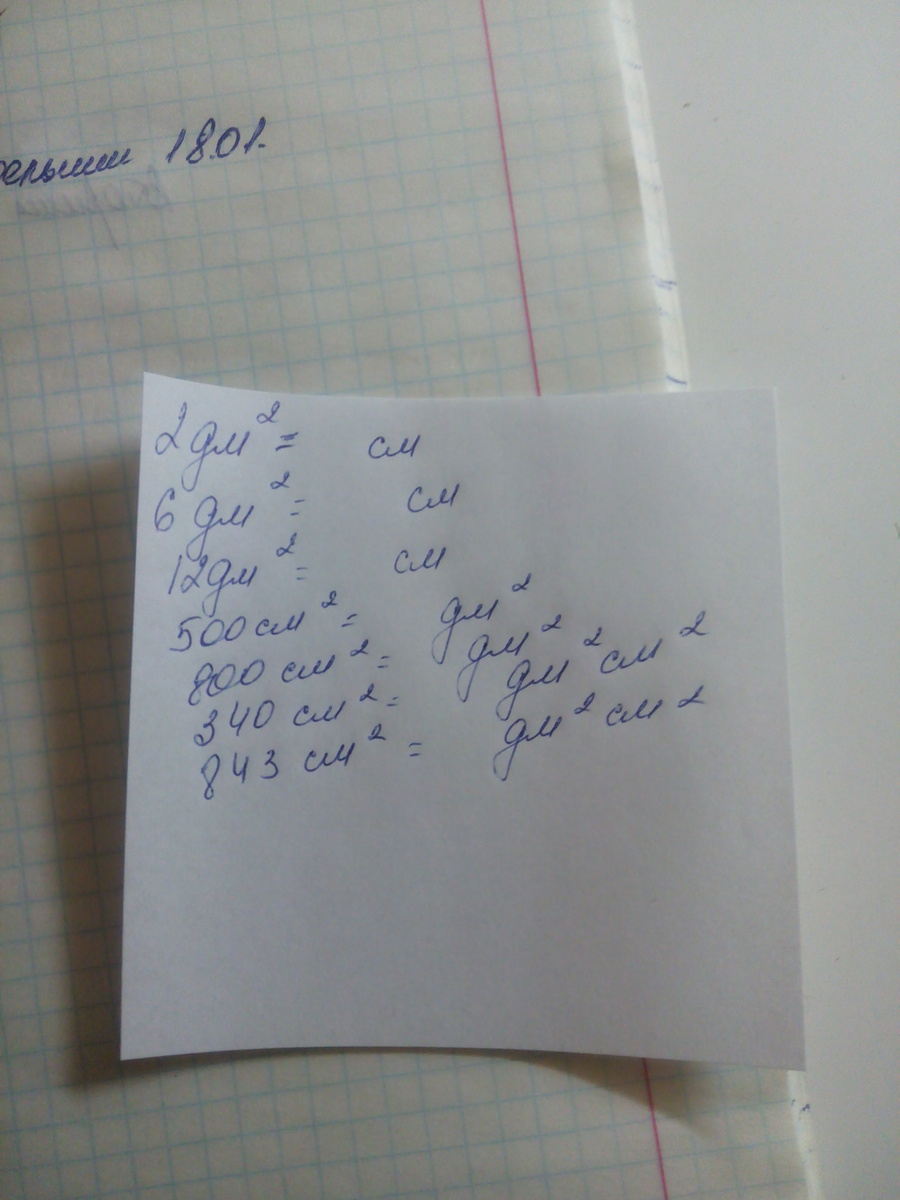 18.01.
2 дм² = см
6 дм² = см
12 дм² = см
500 см² = дм²
800 см² = дм²
340 см² = дм² см²
843 см² = дм² см²